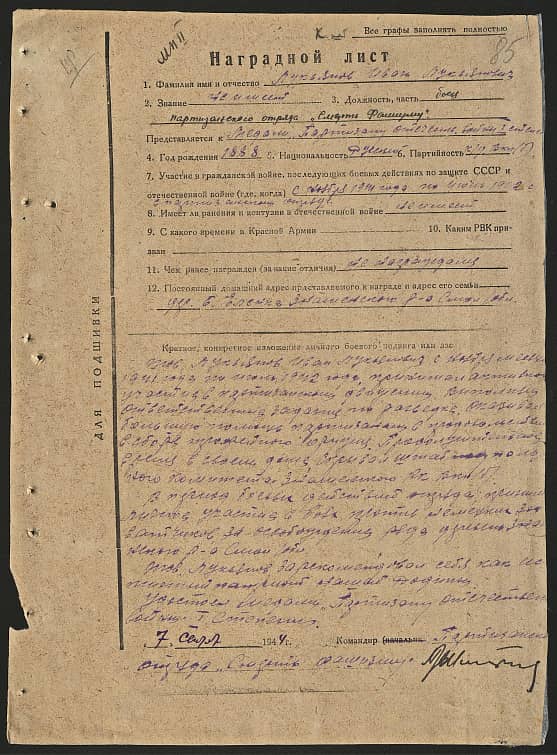 Все графы заполнять полностью
85
Наградной лист
1. Фамилия имя и отчество Лукьянов Иван Лукьянович
2. Звание не имеет 3. Должность, часть боец
партизанского отряда „Смерть Фашизму"
Представляется к Медали „Партизану отечествен. войны" I степ.
4. Год рождения 1888 5. Национальность Русский 6. Партийность ВКП(б)
7. Участие в гражданской войне, последующих боевых действиях по защите СССР и
отечественной войне (где, когда) с ноября 1941 года по июнь 1942 г.
в партизанском отряде
8. Имеет ли ранения и контузии в отечественной войне не имеет
9. С какого времени в Красной Армии 10. Каким РВК при-
зван
11. Чем ранее награжден (за какие отличия) не награждался
12. Постоянный домашний адрес представляемого к награде и адрес его семьи
дер. Б. Еленка Знаменского р-а Смол. обл.
Краткое, конкретное изложение личного боевого подвига или
Тов. Лукьянов Иван Лукьянович с ноября месяца
1941 года по июнь 1942 года, принимал активное
участие в партизанском движении, выполнял
ответственные задания по разведке, оказывал
большую помощь партизанам в продовольствии
в сборе оружейного
время в своем доме скрывал штаб подполь-
ного комитета Знаменского РК ВКП(б).
В период боевых действий отряда принимал
участие в боях против немецких зах-
ватчиков за освобождение ряда
р-а Смол. обл.
Тов. Лукьянов зарекомендовал себя как
патриот нашей Родины
Удостоен Медали „Партизану отечествен.
войны" I степени.
7 мая 1944 г. Командир Партизанск.
отряда „Смерть фашизму"
ДЛЯ ПОДШИВКИ